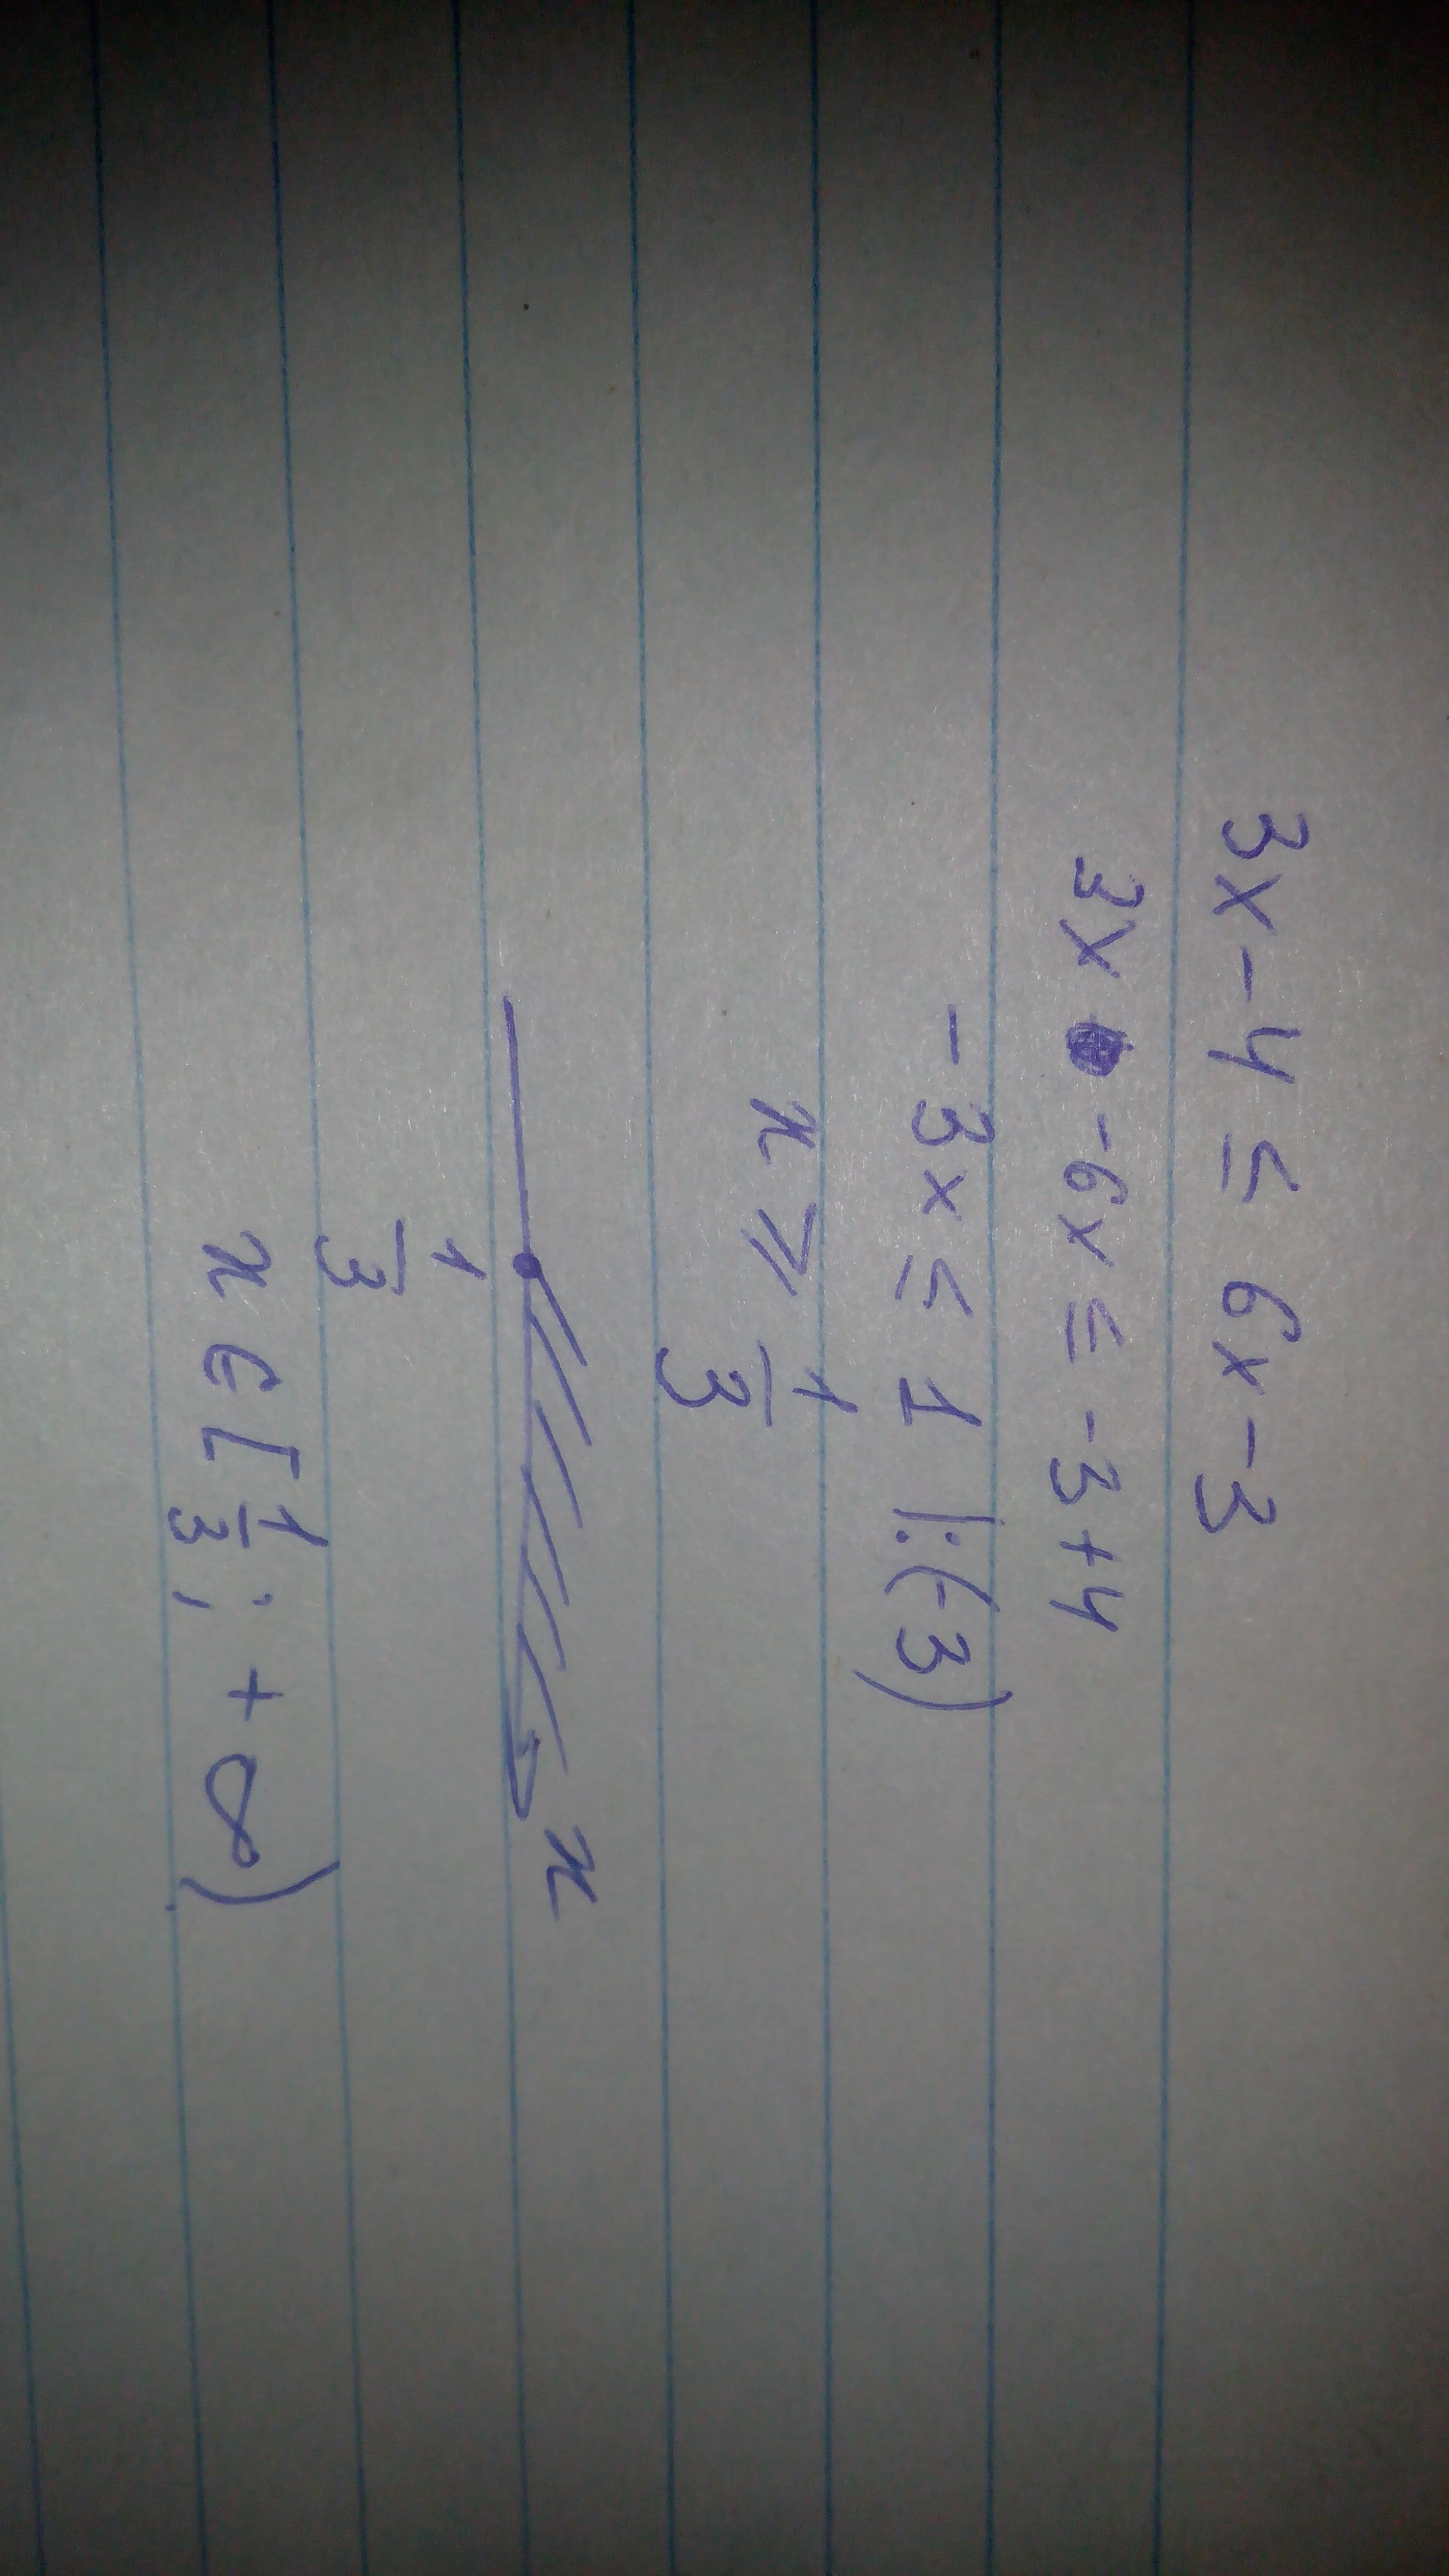 3x - 4 ≤ 6x - 3
3x - 6x ≤ -3 + 4
-3x ≤ 1 |:(-3)
x ⩾ 1/3
x
1/3
x ∈ [1/3; +∞)